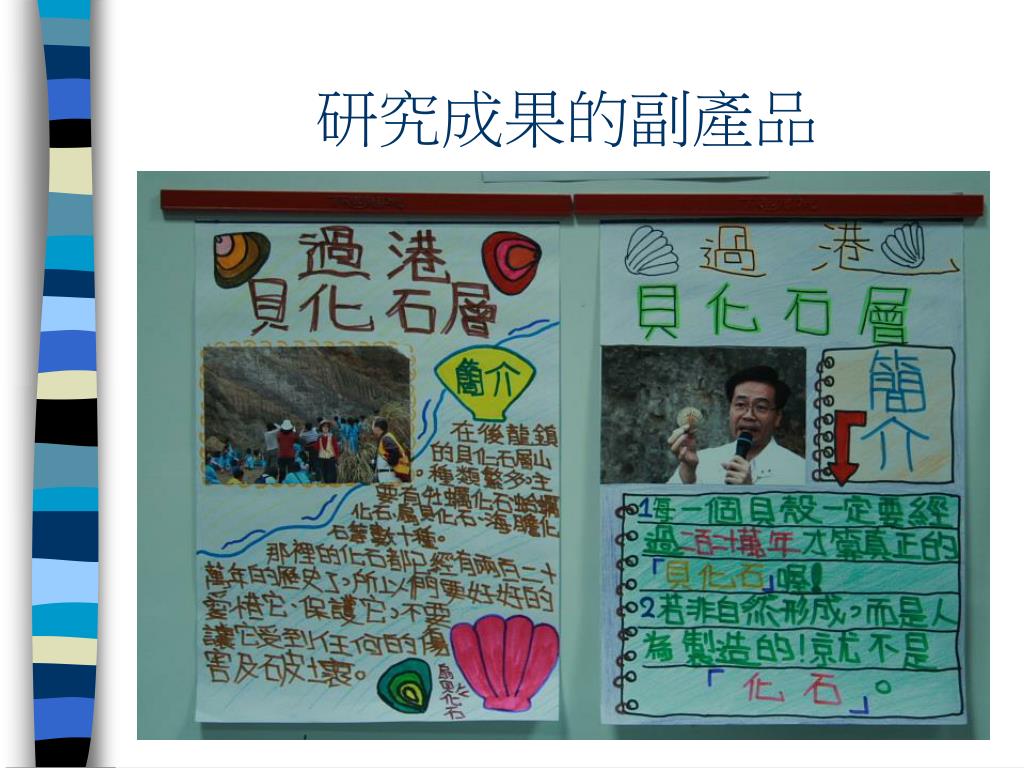 研究成果的副產品
過港
貝化石層
簡介
在後龍鎮
的貝化石層山
。種類繁多,主
要有牡蠣化石、蛤蠣
化石、扇貝化石、海膽化
石等數十種。
那裡的化石都已經有兩百二十
萬年的歷史了,所以們要好好的
愛惜它、保護它,不要
讓它受到任何的傷
害及破壞。
扇貝化石
過港
貝化石層
簡介
1每一個貝殼一定要經
過二百二十萬年才算真正的
「貝化石」喔!
2若非自然形成,而是人
為製造的!就不是
「化石」。